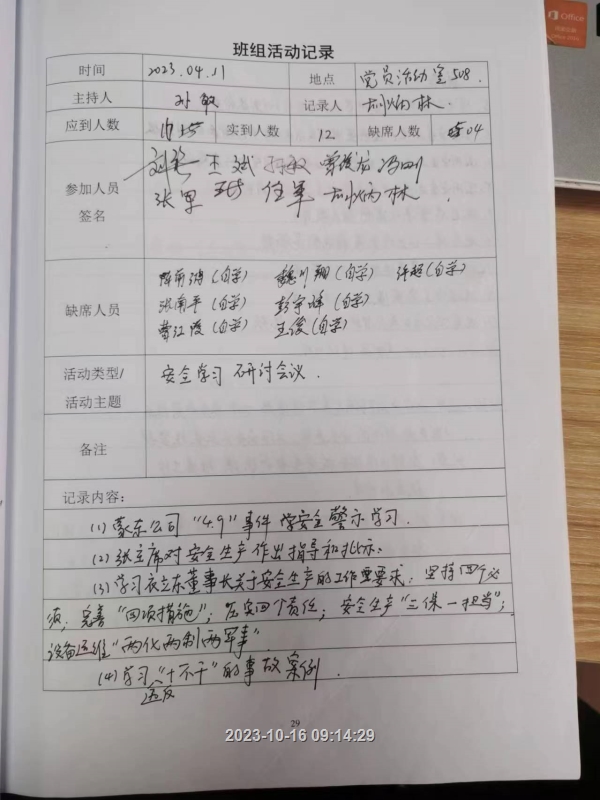 Office
班组活动记录
时间 2023.04.11 地点 党员活动室508.
主持人 孙敏 记录人 炳林.
应到人数 实到人数 12 缺席人数 04
参加人员
签名
王斌 孙敏 冯刚
张军 任军 炳林
缺席人员
(自学) 魏川翔(自学) 许超(自学)
张南平(自学) 彭宇峰(自学)
曹江霞(自学) 王俊(自学)
活动类型/
活动主题
安全学习 研讨会议.
备注
记录内容:
(1) 蒙东公司“4.9”事件 学安全警示学习.
(2) 张主席对安全生产作出指导和批示.
(3) 学习衣立东董事长关于安全生产的工作重要求, 坚持四个必
须, 完善“四项措施”; 压实四个责任; 安全生产“三保一担当”;
设备运维“两化两制两军事”
(4) 学习“十不干”的事故案例.
违反
29
2023-10-16 09:14:29